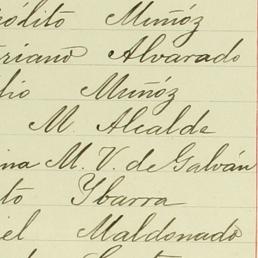 ólito Muñóz
riano Alvarado
lio Muñóz
M. Alcalde
ina M. V. de Galván
to Ybarra
iel Maldonado